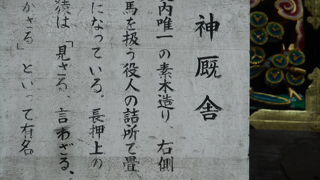 神厩舎
内唯一の素木造り、右側
馬を扱う役人の詰所で畳
になっている。長押上の
猿は、「見ざる、言わざる、
かざる」といって有名